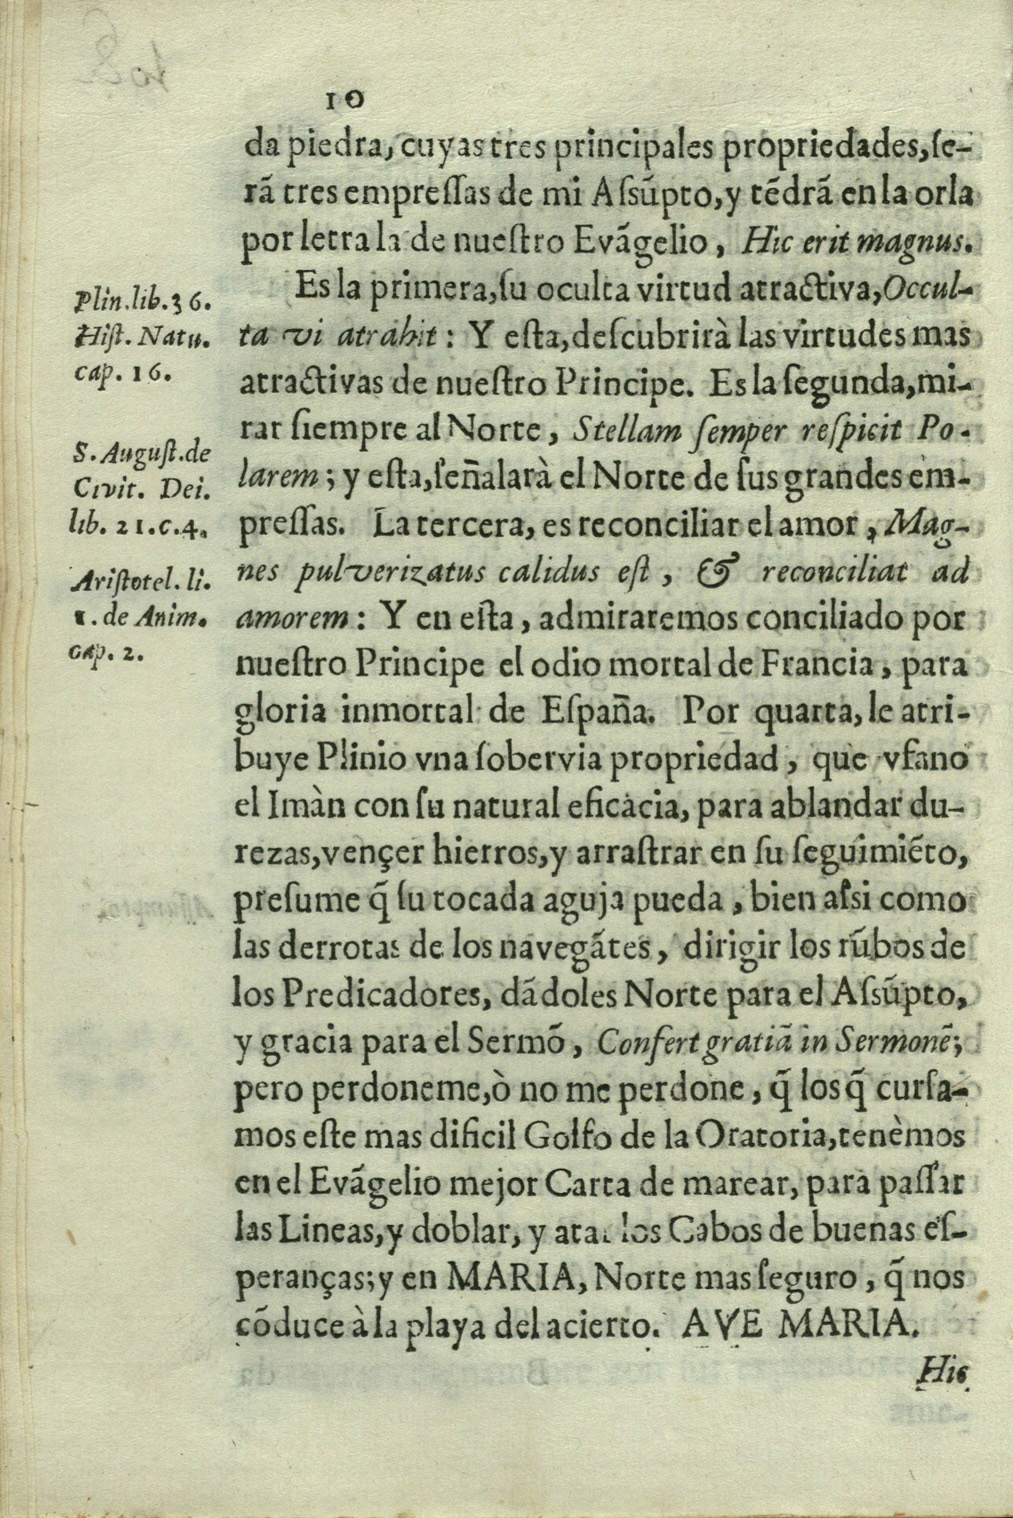 10
da piedra, cuyas tres principales propriedades, ſe-
rã tres empreſſas de mi Aſsũpto, y tẽdrã en la orla
por letra la de nueſtro Evãgelio, Hic erit magnus.
Es la primera, ſu oculta virtud atractiva, Occul-
ta vi atrahit: Y eſta, deſcubrirà las virtudes mas
atractivas de nueſtro Principe. Es la ſegunda, mi-
rar ſiempre al Norte, Stellam ſemper reſpicit Po-
larem; y eſta, ſeñalarà el Norte de ſus grandes em-
preſſas. La tercera, es reconciliar el amor, Mag-
nes pulverizatus calidus eſt, & reconciliat ad
amorem: Y en eſta, admiraremos conciliado por
nueſtro Principe el odio mortal de Francia, para
gloria inmortal de Eſpaña. Por quarta, le atri-
buye Plinio vna ſobervia propriedad, que vfano
el Imàn con ſu natural eficacia, para ablandar du-
rezas, vençer hierros, y arraſtrar en ſu ſeguimiẽto,
preſume q̃ ſu tocada aguja pueda, bien aſsi como
las derrotas de los navegãtes, dirigir los rũbos de
los Predicadores, dãdoles Norte para el Aſsũpto,
y gracia para el Sermõ, Confert gratiã in Sermonẽ;
pero perdoneme, ò no me perdone, q̃ los q̃ curſa-
mos eſte mas dificil Golfo de la Oratoria, tenèmos
en el Evãgelio mejor Carta de marear, para paſſar
las Lineas, y doblar, y atar los Cabos de buenas eſ-
peranças; y en MARIA, Norte mas ſeguro, q̃ nos
cõduce à la playa del acierto. AVE MARIA.
Hic
Plin. lib. 36.
Hiſt. Natu.
cap. 16.
S. Auguſt. de
Civit. Dei.
lib. 21. c. 4.
Ariſtotel. li.
1. de Anim.
cap. 2.